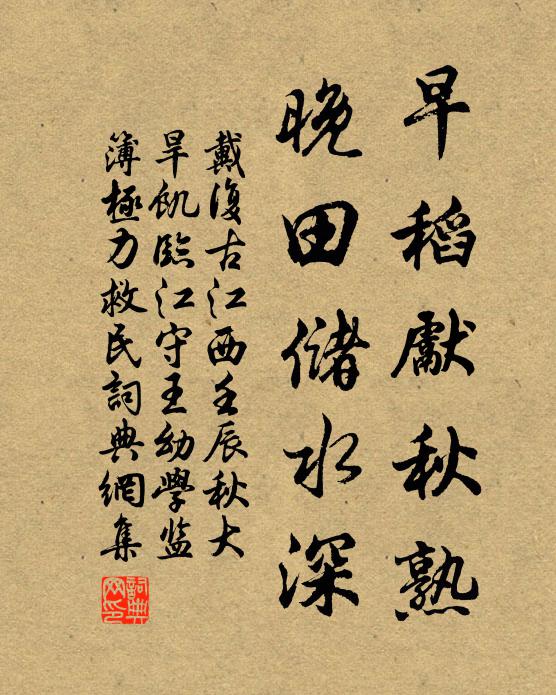 早稻獻秋熟
晚田儲水深
戴復古江西壬辰秋大
旱飢臨江守王幼學监
簿極力救民詞典網集
詞典
网印